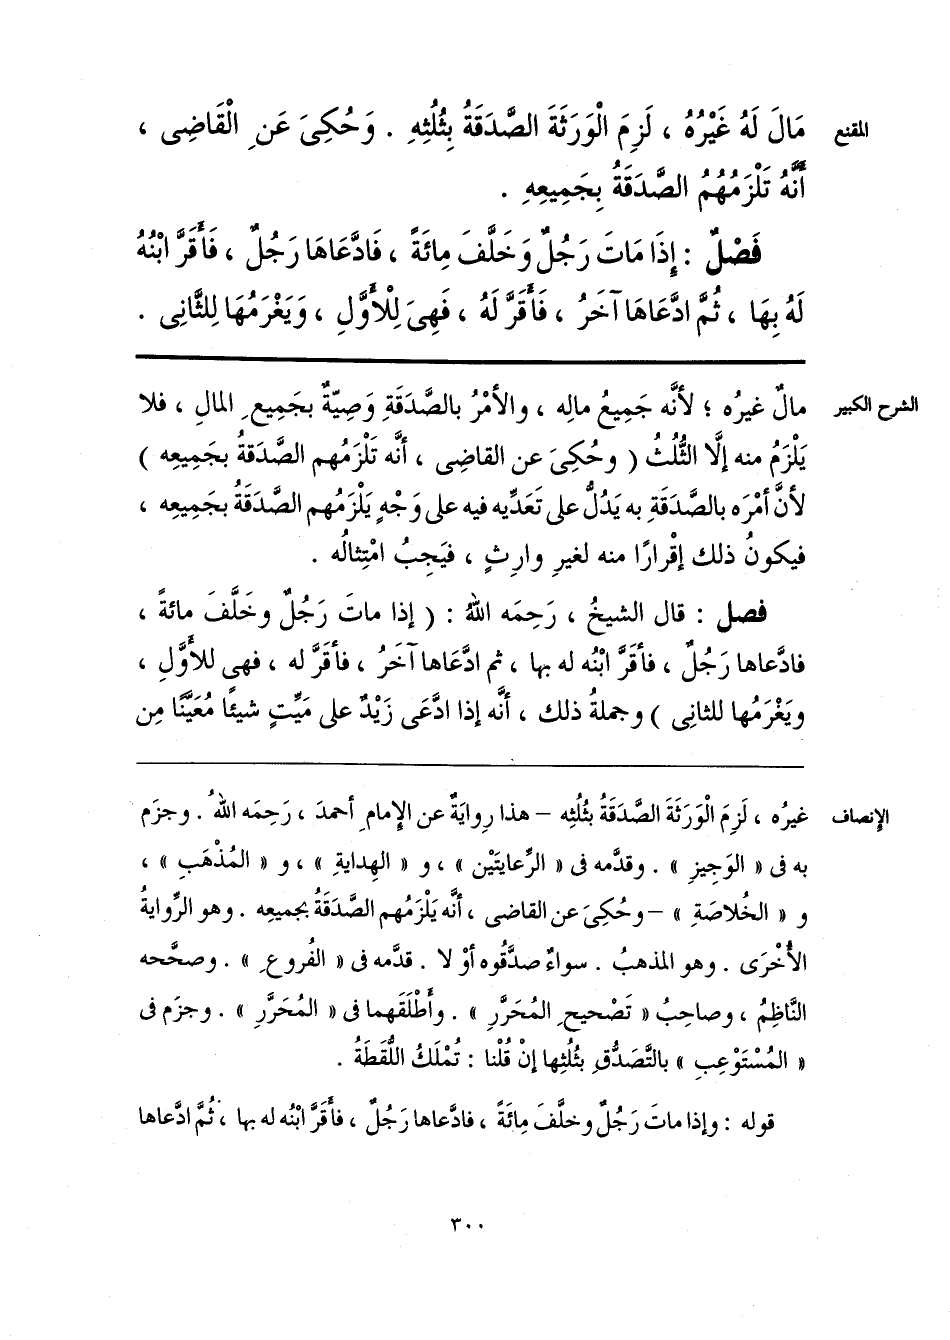 المقنع
مَالَ لَهُ غَيْرُهُ ، لَزِمَ الْوَرَثَةَ الصَّدَقَةُ بِثُلُثِهِ . وَحُكِىَ عَنِ الْقَاضِى ،
أَنَّهُ تَلْزَمُهُمُ الصَّدَقَةُ بِجَمِيعِهِ .
فَصْلٌ : إِذَا مَاتَ رَجُلٌ وَخَلَّفَ مِائَةً ، فَادَّعَاهَا رَجُلٌ ، فَأَقَرَّ ابْنُهُ
لَهُ بِهَا ، ثُمَّ ادَّعَاهَا آخَرُ ، فَأَقَرَّ لَهُ ، فَهِىَ لِلْأَوَّلِ ، وَيَغْرَمُهَا لِلثَّانِى .
الشرح الكبير
مالٌ غيرُه ؛ لأنَّه جَمِيعُ مالِه ، والأمْرُ بالصَّدَقَةِ وَصِيّةٌ بجَمِيعِ المالِ ، فلا
يَلْزَمُ منه إلَّا الثُّلُثُ ( وحُكِىَ عن القاضِى ، أنَّه تَلْزَمُهم الصَّدَقةُ بجَمِيعِه )
لأنَّ أمْرَه بالصَّدَقَةِ به يَدُلُّ على تَعَدِّيه فيه على وَجْهٍ يَلْزَمُهم الصَّدَقَةُ بجَمِيعِه ،
فيكونُ ذلك إقْرارًا منه لغيرِ وارِثٍ ، فيَجِبُ امْتِثالُه .
فصل : قال الشيخُ ، رَحِمَه اللهُ : ( إذا ماتَ رَجُلٌ وخَلَّفَ مائةً ،
فادَّعاها رَجُلٌ ، فأقَرَّ ابْنُه له بها ، ثم ادَّعَاها آخَرُ ، فأقَرَّ له ، فهى للأوَّلِ ،
ويَغْرَمُها للثانِى ) وجملةُ ذلك ، أنَّه إذا ادَّعَى زَيْدٌ على مَيِّتٍ شيئًا مُعَيَّنًا مِن
الإنصاف
غيرُه ، لَزِمَ الْوَرَثَةَ الصَّدَقَةُ بثُلُثِه – هذا رِوايَةٌ عن الإمامِ أحمدَ ، رَحِمَه اللهُ . وجزَم
به فى « الوَجِيزِ » . وقدَّمه فى « الرِّعايتَيْن » ، و « الهِدايةِ » ، و « المُذْهَبِ » ،
و « الخُلاصَةِ » – وحُكِىَ عن القاضى ، أنَّه يَلْزَمُهم الصَّدَقَةُ بجميعِه . وهو الرِّوايةُ
الأُخْرَى . وهو المذهبُ . سواءٌ صدَّقُوه أوْ لا . قدَّمه فى « الفُروعِ » . وصحَّحه
النَّاظِمُ ، وصاحِبُ « تَصْحيحِ المُحَرَّرِ » . وأَطْلَقَهما فى « المُحَرَّرِ » . وجزَم فى
« المُسْتَوْعِبِ » بالتَّصَدُّقِ بثُلُثِها إنْ قُلْنا : تُمْلَكُ اللُّقَطَةُ .
قوله : وإذا ماتَ رَجُلٌ وخلَّفَ مِائَةً ، فادَّعاها رَجُلٌ ، فأَقَرَّ ابْنُه له بها ، ثُمَّ ادَّعاها
٣٠٠